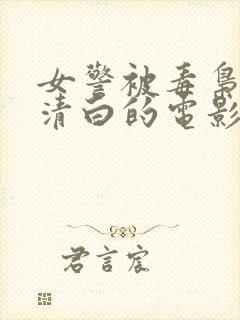 女警被毒枭
清白的电影
君言宸